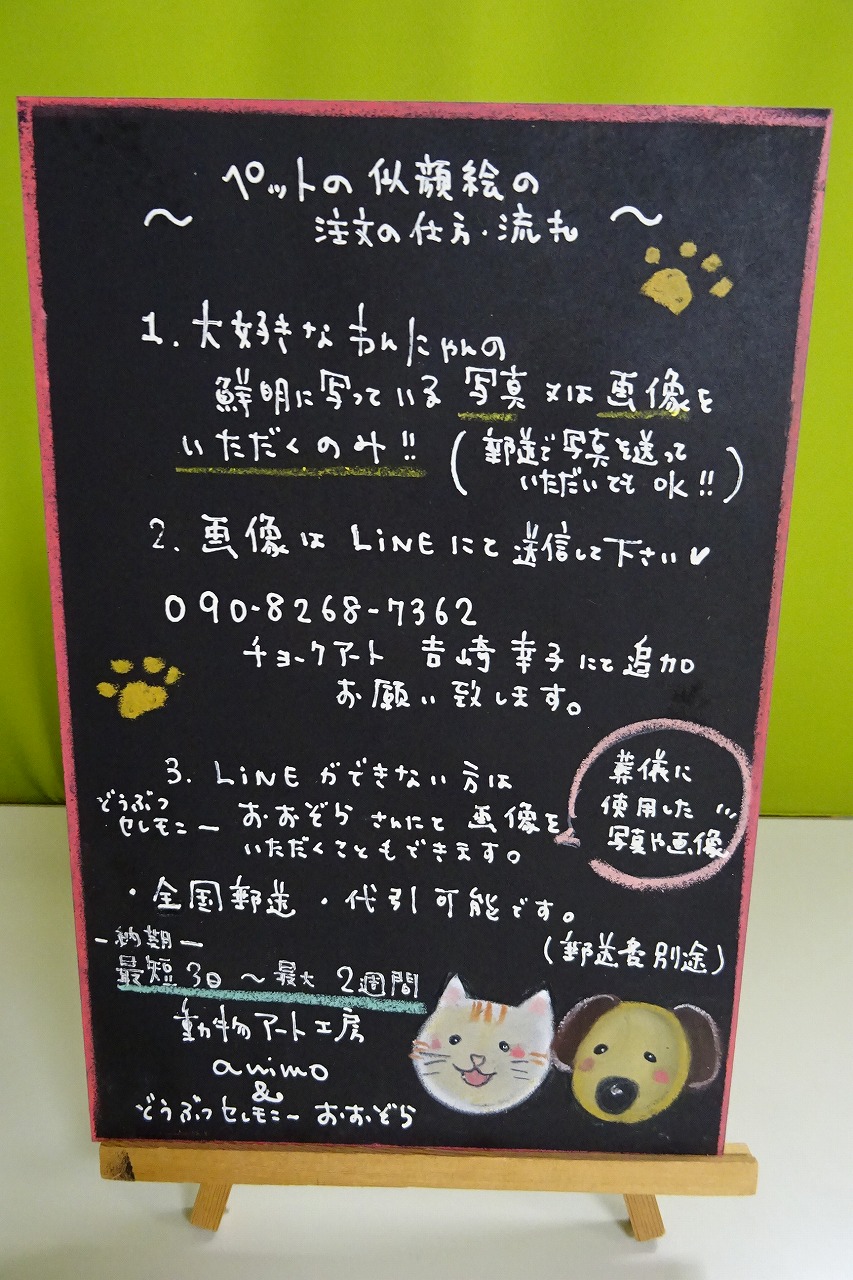 ～ ペットの似顔絵の
注文の仕方・流れ ～
1. 大好きなわんにゃんの
鮮明に写っている写真又は画像を
いただくのみ!!
(郵送で写真を送って
いただいてもOK!!)
2. 画像はLiNEにて送信して下さい
090-8268-7362
チョークアート 吉崎幸子にて追加
お願い致します。
3. LiNEができない方は
どうぶつ
セレモニー おおぞらさんにて画像を
いただくこともできます。
葬儀に
使用した
写真や画像
・全国郵送・代引可能です。
(郵送費別途)
-納期-
最短3日～最大2週間
動物アート工房
animo
&
どうぶつセレモニー おおぞら